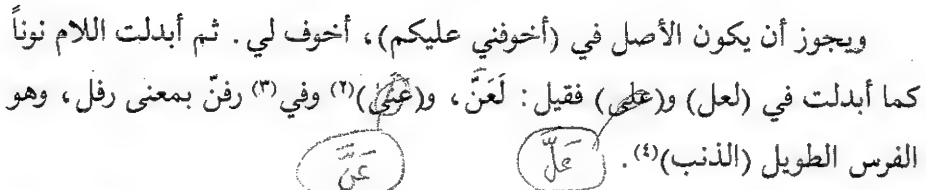 ويجوز أن يكون الأصل في (أخوفني عليكم)، أخوف لي. ثم أبدلت اللام نوناً
كما أبدلت في (لعل) و(على) فقيل: لَعَنَّ، و(عَنَّى)(٢) وفي(٣) رفنّ بمعنى رفل، وهو
الفرس الطويل (الذنب)(٤).
عَلَّ
عَنَّ